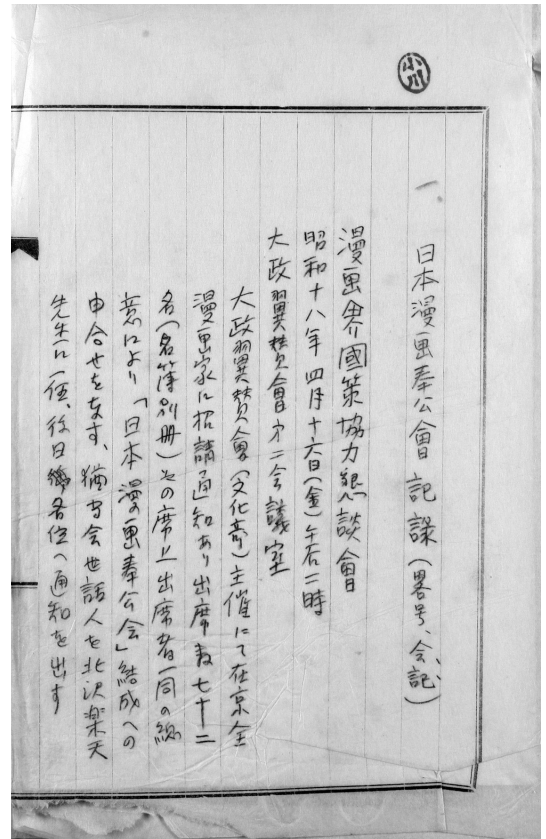 小川
一、日本漫画奉公會記録（畧号、会記）
漫画界國策協力懇談會
昭和十八年四月十六日（金）午后二時
大政翼賛會才二会議室
大政翼賛會（文化部）主催にて在京全
漫画家に招請通知あり出席者七十二
名（名簿別册）その席上出席者一同の総
意により「日本漫画奉公会」結成への
申合せをなす、猶当会世話人を北沢楽天
先生に一任、後日各位へ通知を出す